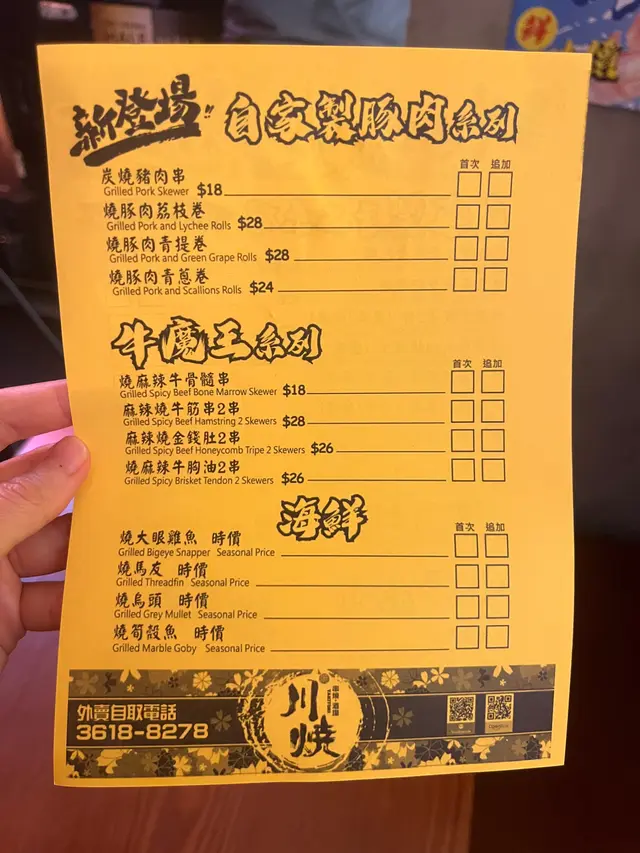 新登場!! 自家製豚肉系列
首次 追加
炭燒豬肉串
Grilled Pork Skewer $18
燒豚肉荔枝卷
Grilled Pork and Lychee Rolls $28
燒豚肉青提卷
Grilled Pork and Green Grape Rolls $28
燒豚肉青蔥卷
Grilled Pork and Scallions Rolls $24
牛魔王系列
首次 追加
燒麻辣牛骨髓串
Grilled Spicy Beef Bone Marrow Skewer $18
麻辣燒牛筋串2串
Grilled Spicy Beef Hamstring 2 Skewers $28
麻辣燒金錢肚2串
Grilled Spicy Beef Honeycomb Tripe 2 Skewers $26
燒麻辣牛胸油2串
Grilled Spicy Brisket Tendon 2 Skewers $26
海鮮
首次 追加
燒大眼雞魚 時價
Grilled Bigeye Snapper Seasonal Price
燒馬友 時價
Grilled Threadfin Seasonal Price
燒烏頭 時價
Grilled Grey Mullet Seasonal Price
燒筍殼魚 時價
Grilled Marble Goby Seasonal Price
外賣自取電話
3618-8278
川燒